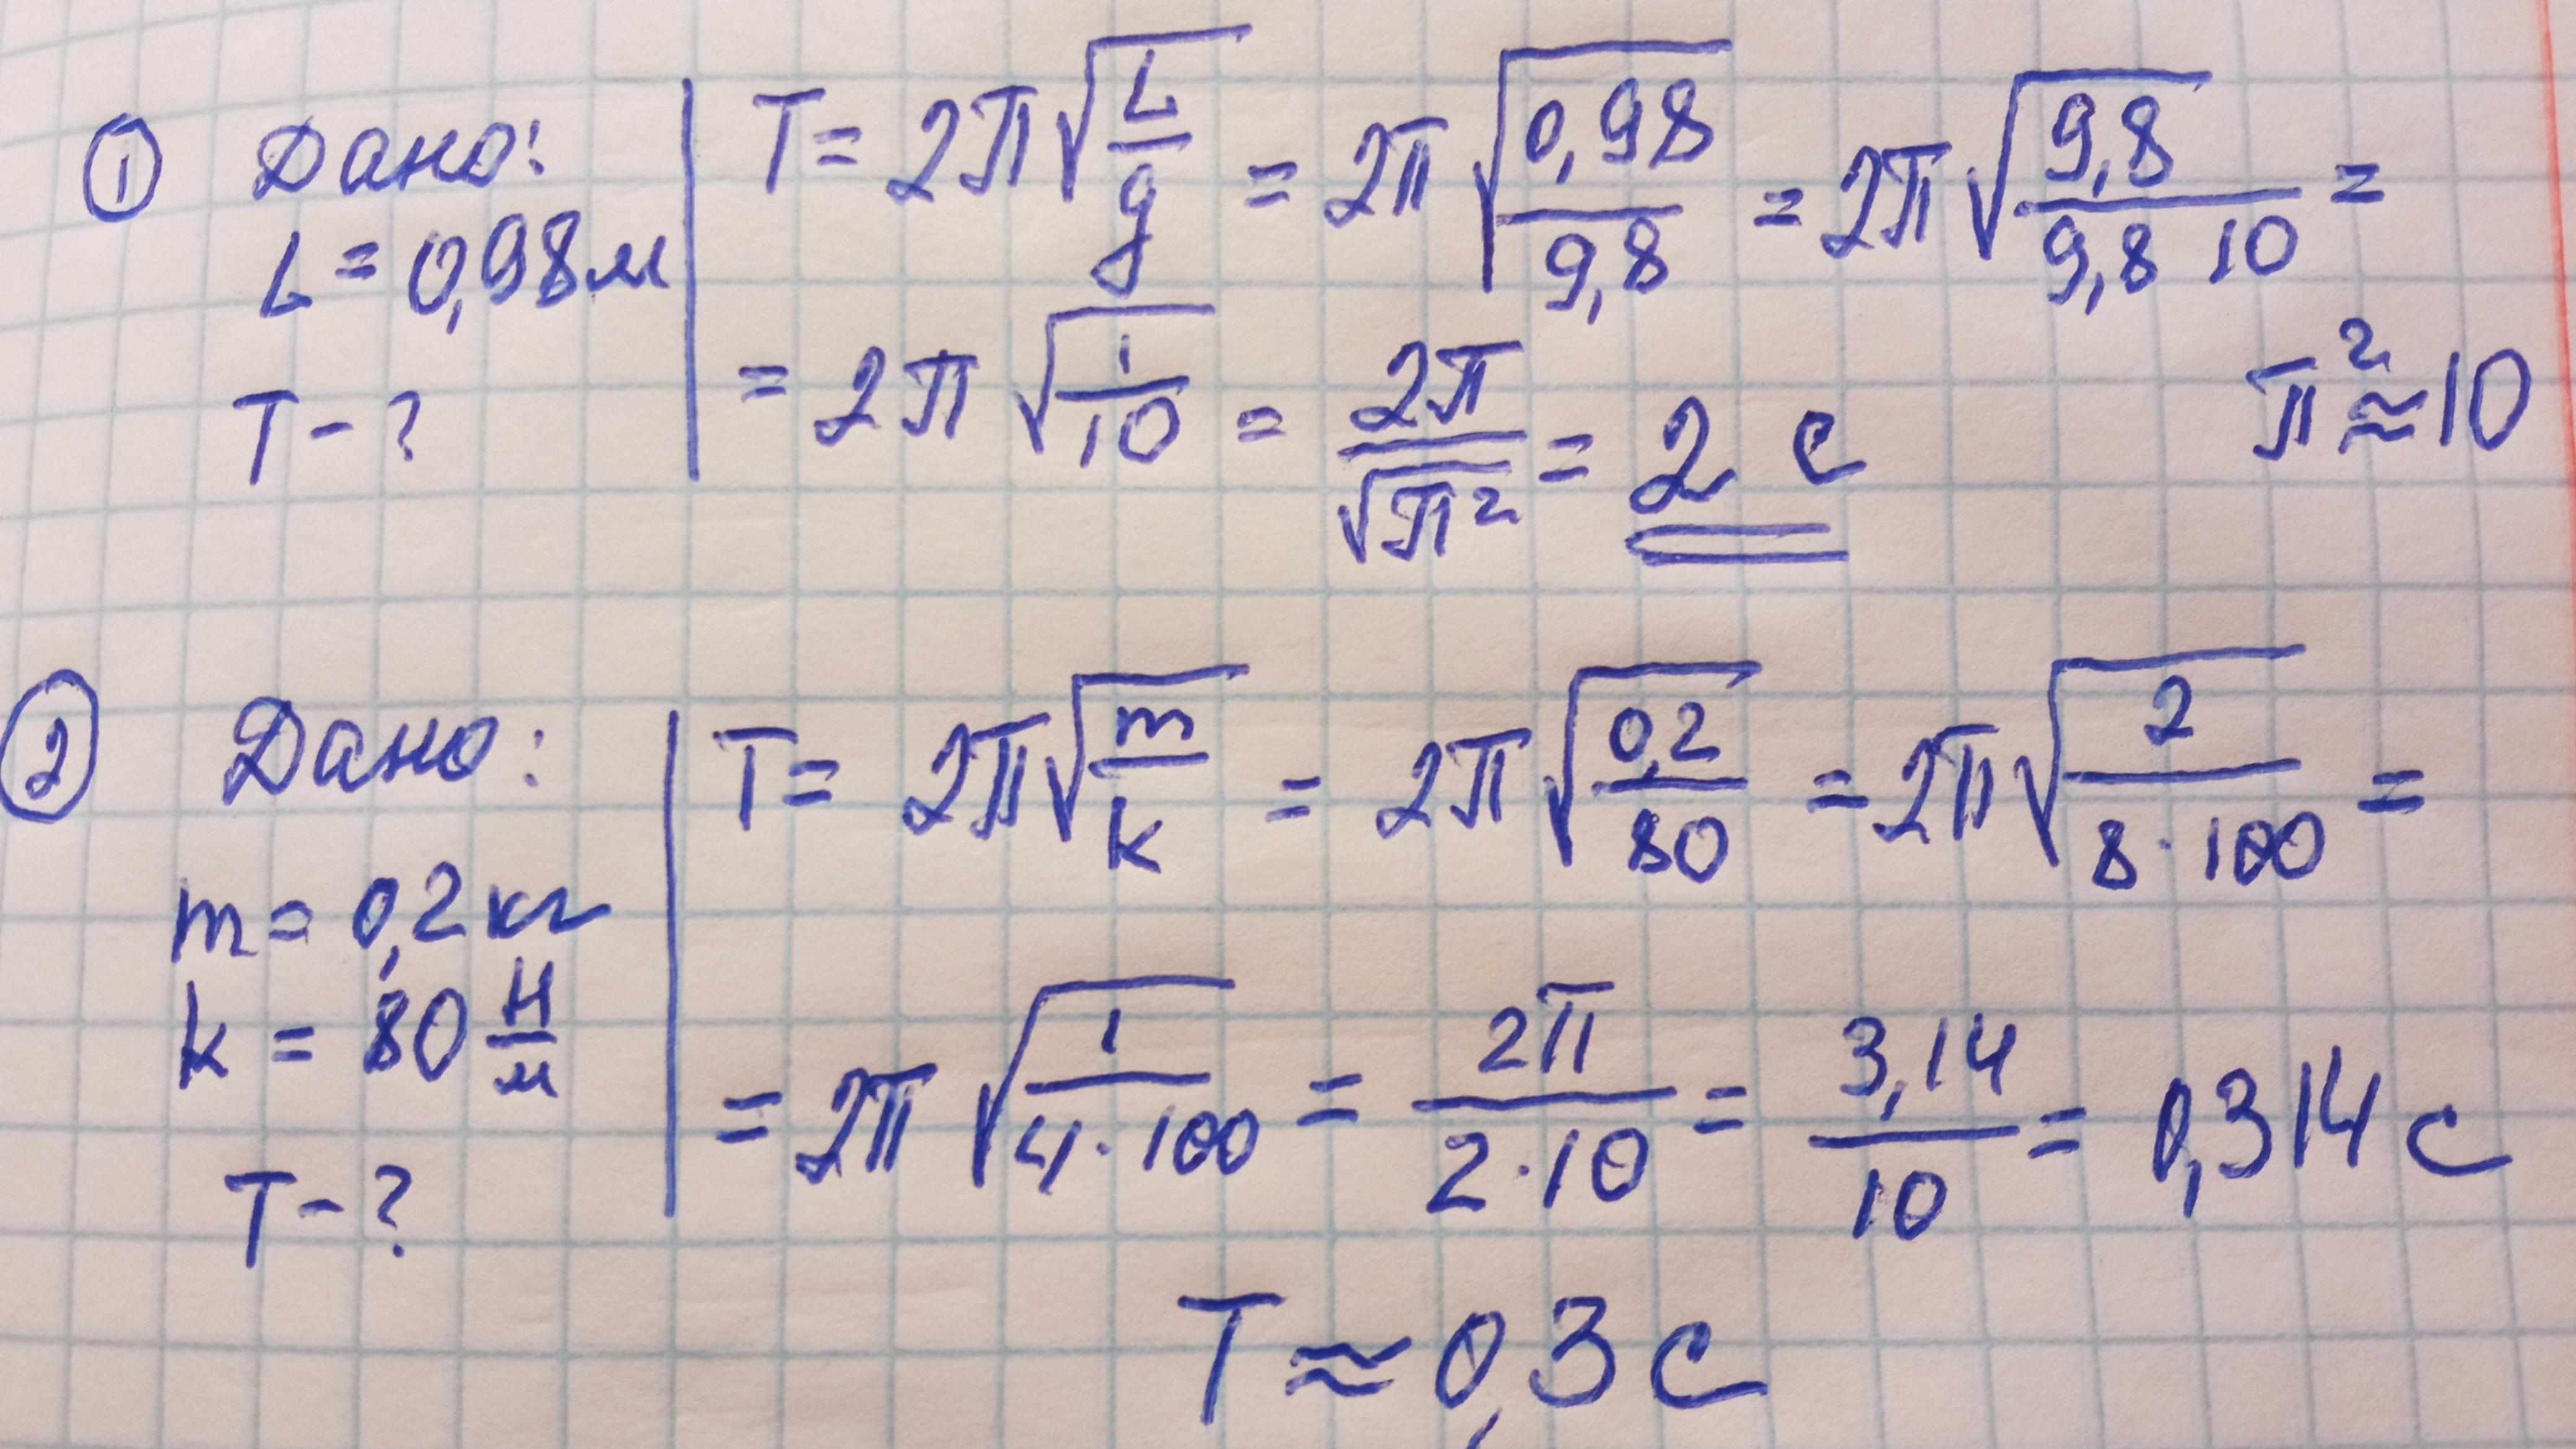 ① Дано:
L = 0,98 м
T - ?
T = 2π√(L/g) = 2π√(0,98/9,8) = 2π√(9,8/(9,8 10)) =
= 2π√(1/10) = 2π/√π² = 2 с
π² ≈ 10
② Дано:
m = 0,2 кг
k = 80 Н/м
T - ?
T = 2π√(m/k) = 2π√(0,2/80) = 2π√(2/(8·100)) =
= 2π√(1/(4·100)) = 2π/(2·10) = 3,14/10 = 0,314 с
T ≈ 0,3 с